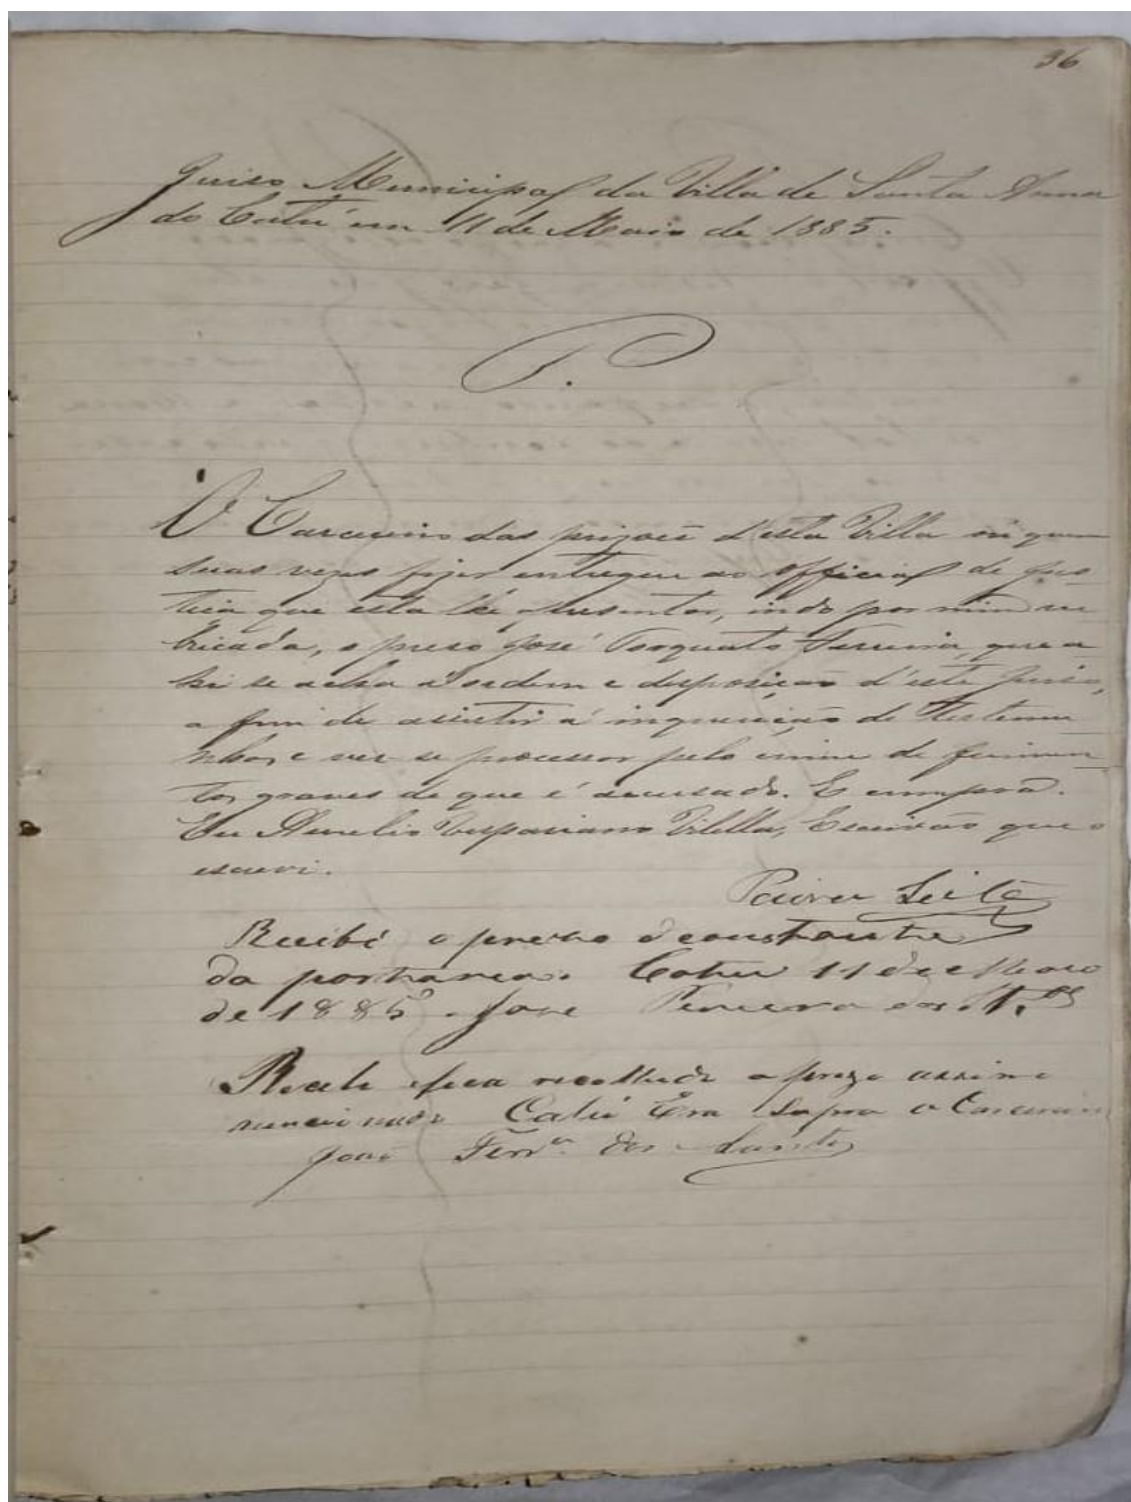 36
Juiso Municipal da Villa de Santa Anna
do Catú em 11 de Maio de 1885.
P.
O Carcereiro das prizoes d'esta Villa ou quem
suas vezes fizer entregue ao official de jus
tiça que esta lhe apresentar, indo por mim ru
bricada, o preso José Torquato Ferreira, que a
hi se acha á ordem e disposição d'este Juiso,
a fim de assistir á inquirição de testemu
nhas e ver se processar pelo crime de ferimen
tos graves de que é accusado. E cumpra.
Eu Aurelio Vespasiano Vilella, Escrivão que o
escrevi.
Paiva Leite
Recibi o prezo constante
da portaria. Catu 11 de Maio
de 1885. José Pereira dos
fica recolhido o prezo assima
mencionado Catú Era Supra o Carcereiro
João Ferrª dos Santos